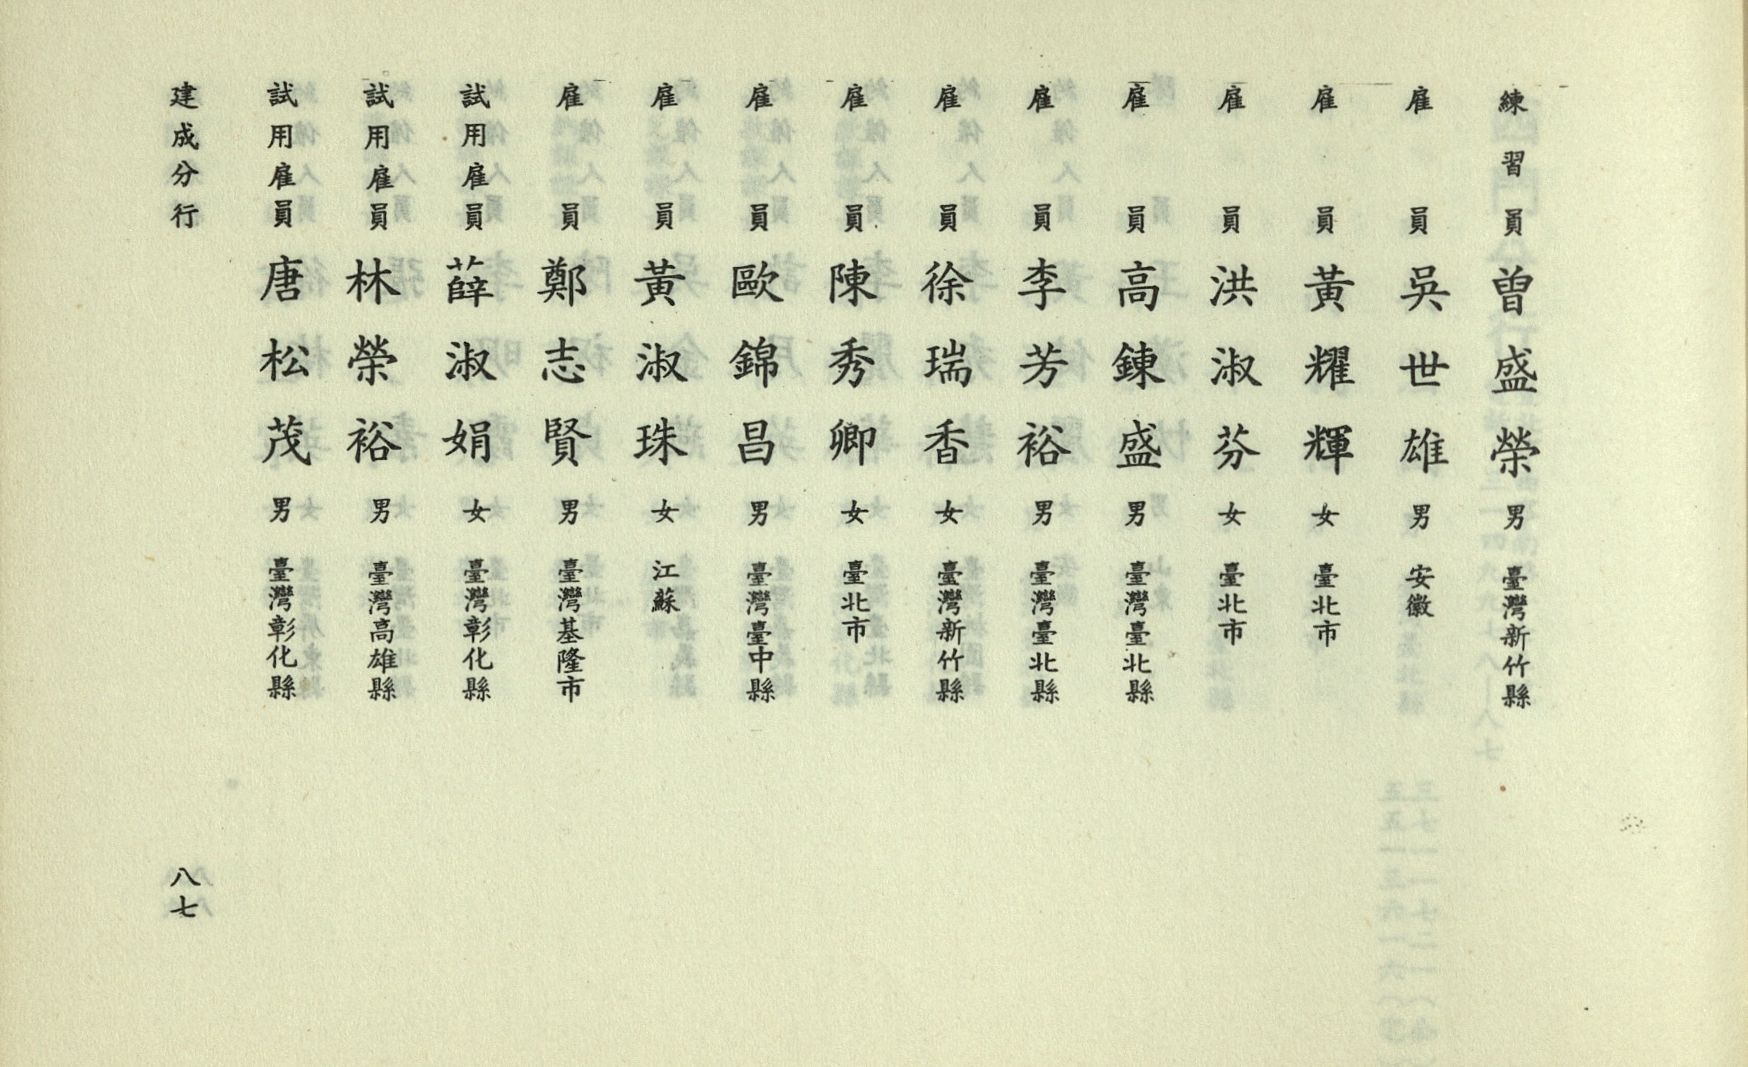 練習員 曾盛榮 男 臺灣新竹縣
雇員 吳世雄 男 安徽
雇員 黃耀輝 女 臺北市
雇員 洪淑芬 女 臺北市
雇員 高鍊盛 男 臺灣臺北縣
雇員 李芳裕 男 臺灣臺北縣
雇員 徐瑞香 女 臺灣新竹縣
雇員 陳秀卿 女 臺北市
雇員 歐錦昌 男 臺灣臺中縣
雇員 黃淑珠 女 江蘇
雇員 鄭志賢 男 臺灣基隆市
試用雇員 薛淑娟 女 臺灣彰化縣
試用雇員 林榮裕 男 臺灣高雄縣
試用雇員 唐松茂 男 臺灣彰化縣
建成分行 八七